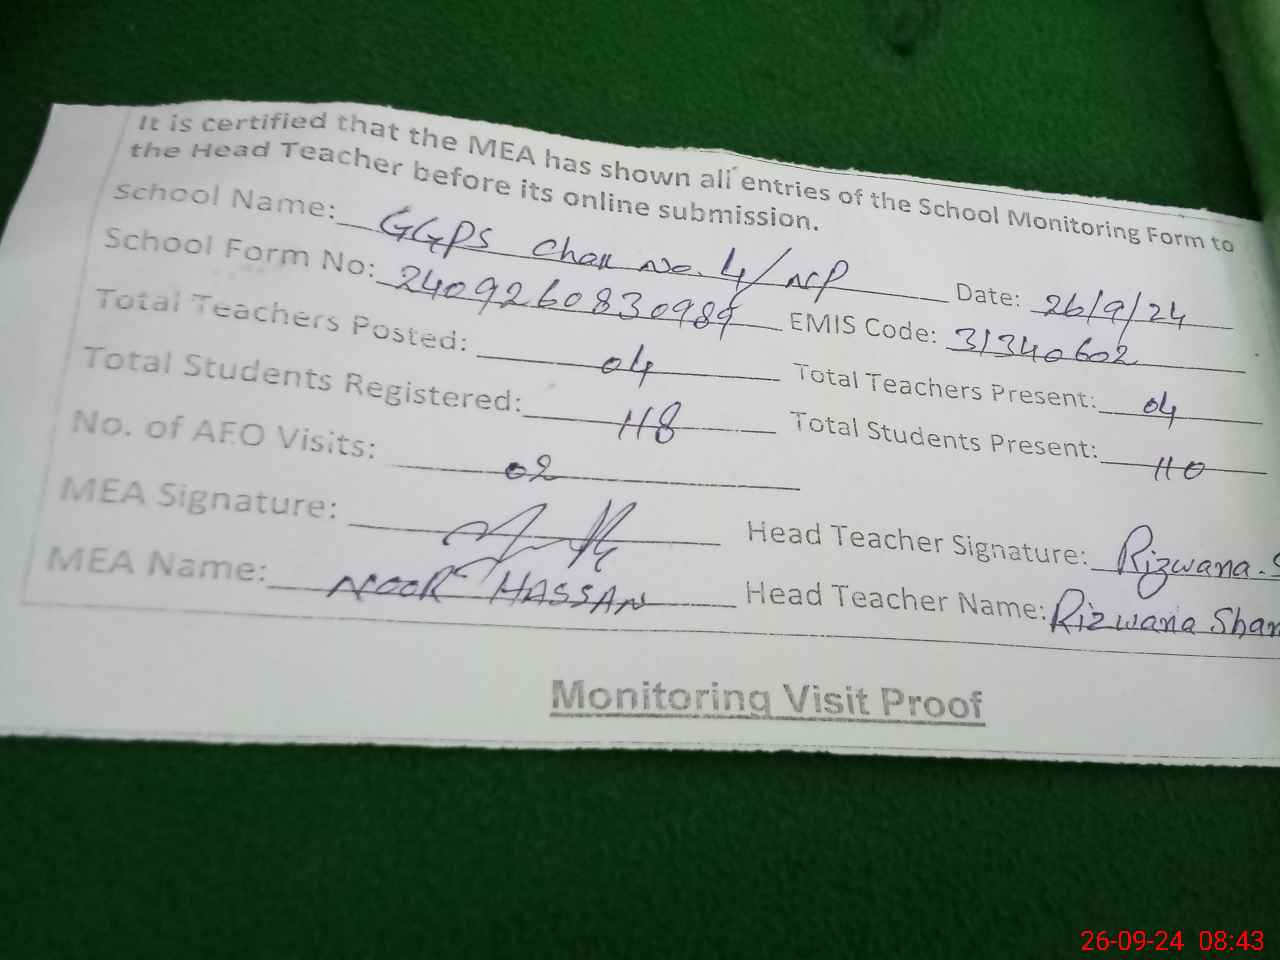 It is certified that the MEA has shown all entries of the School Monitoring Form to
the Head Teacher before its online submission.
School Name: GGPS Chak No. 4/NP Date: 26/9/24
School Form No: 2409260830989 EMIS Code: 31340602
Total Teachers Posted: 04 Total Teachers Present: 04
Total Students Registered: 118 Total Students Present: 110
No. of AEO Visits: 02
MEA Signature: Head Teacher Signature: Rizwana. S
MEA Name: NOOR HASSAN Head Teacher Name: Rizwana Sham
Monitoring Visit Proof
26-09-24 08:43